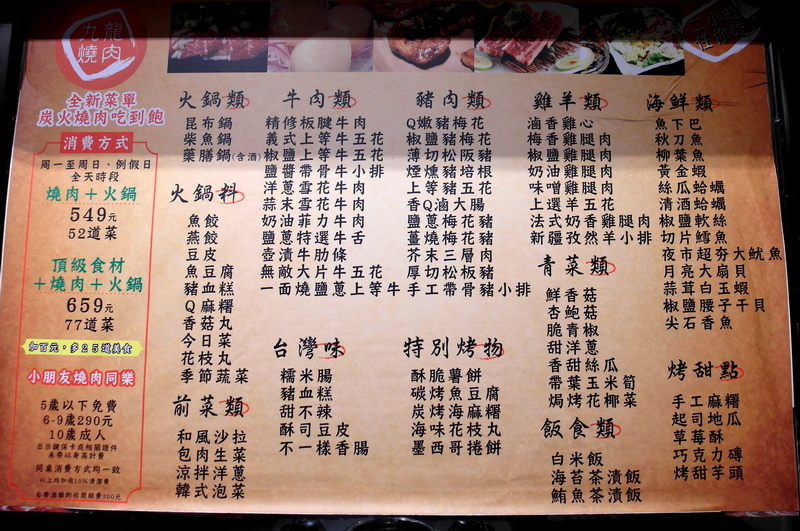 九龍
燒肉
全新菜單
炭火燒肉吃到飽
消費方式
周一至周日、例假日
全天時段
燒肉＋火鍋
549元
52道菜
頂級食材
＋燒肉＋火鍋
659元
77道菜
加百元·多25道美食
小朋友燒肉同樂
5歲以下免費
6-9歲290元
10歲成人
出示健保卡或相關證件
未帶以身高計費
同桌消費方式均一致
以上均加收10%清潔費
火鍋類
昆布鍋
柴魚鍋
藥膳鍋(含酒)
火鍋料
魚餃
燕餃
豆皮
魚豆腐
豬血糕
Q麻糬
香菇丸
今日菜
花枝丸
季節蔬菜
前菜類
和風沙拉
包肉生菜
涼拌洋蔥
韓式泡菜
牛肉類
精修板腱牛肉
義式上等牛五花
椒鹽上等牛五花
鹽醬帶骨牛小排
洋蔥雪花牛肉
蒜末雪花牛肉
奶油菲力牛肉
鹽蔥特選牛舌
壺漬牛肋條
無敵大片牛五花
一面燒鹽蔥上等牛
台灣味
糯米腸
豬血糕
甜不辣
酥司豆皮
不一樣香腸
豬肉類
Q嫩豬梅花
椒鹽豬梅花
薄切松阪豬
煙燻豬培根
上等豬五花
香Q滷大腸
鹽蔥梅花豬
薑燒梅花豬
芥末三層肉
厚切松板豬
手工帶骨豬小排
特別烤物
酥脆薯餅
碳烤魚豆腐
炭烤海麻糬
海味花枝丸
墨西哥捲餅
雞羊類
滷香雞心
梅香雞腿肉
椒鹽雞腿肉
奶油雞腿肉
味噌雞腿肉
上選羊五花
法式奶香雞腿肉
新疆孜然羊小排
青菜類
鮮香菇
杏鮑菇
脆青椒
甜洋蔥
香甜絲瓜
帶葉玉米筍
焗烤花椰菜
飯食類
白米飯
海苔茶漬飯
鮪魚茶漬飯
海鮮類
魚下巴
秋刀魚
柳葉魚
黃金蝦
絲瓜蛤蠣
清酒蛤蠣
椒鹽軟絲
切片鱈魚
夜市超夯大魷魚
月亮大扇貝
蒜茸白玉蝦
椒鹽腰子干貝
尖石香魚
烤甜點
手工麻糬
起司地瓜
草莓酥
巧克力磚
烤甜芋頭